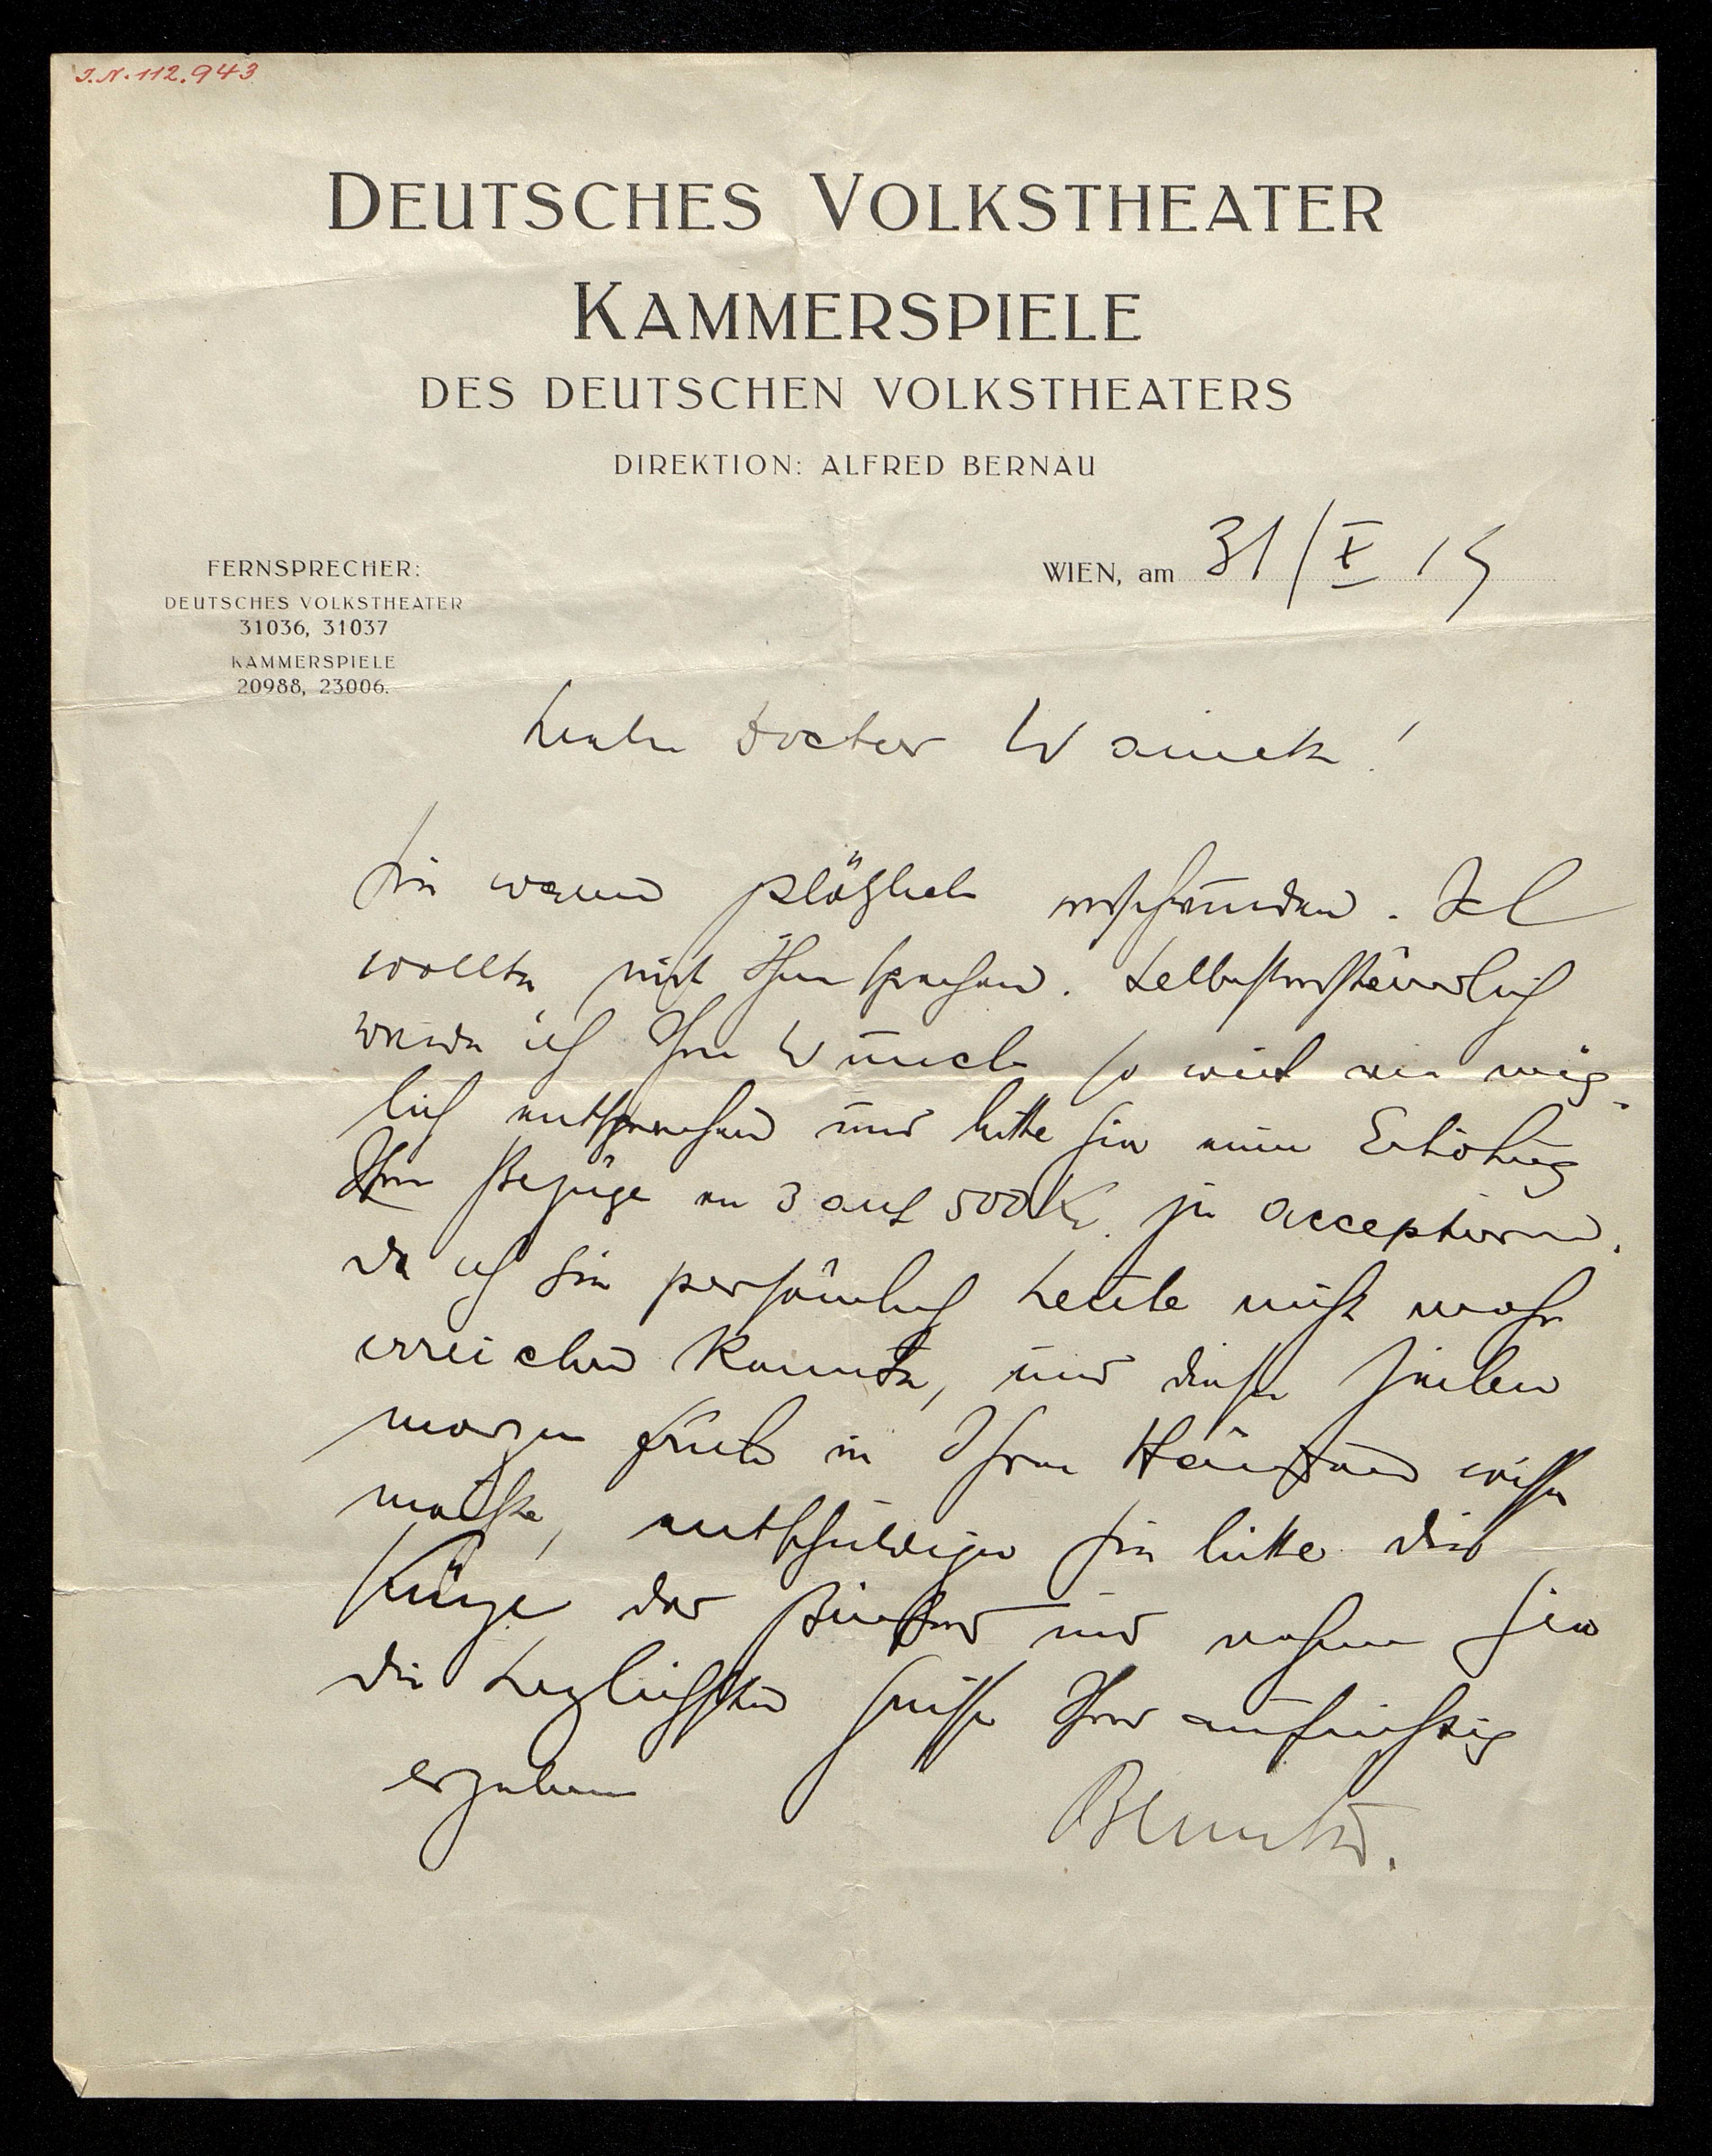 J.N. 112.943
DEUTSCHES VOLKSTHEATER
KAMMERSPIELE
DES DEUTSCHEN VOLKSTHEATERS
DIREKTION: ALFRED BERNAU
FERNSPRECHER:
DEUTSCHES VOLKSTHEATER
31036, 31037
KAMMERSPIELE
20988, 23006.
WIEN, am 31/X 19
Lieber Doctor
Sie waren plötzlich verschwunden. Ich
wollte mit Ihnen sprechen. Selbstverständlich
werde ich Ihrem Wunsch so weit wie mög-
lich entsprechen und bitte Sie eine Erhöhung
Ihrer Bezüge von 3 auf 500 K. zu acceptieren.
Da ich Sie persönlich heute nicht mehr
erreichen konnte, und diese Zeilen
morgen früh in Ihren Händen wissen
möchte, entschuldigen Sie bitte die
Kürze des und nehmen Sie
die herzlichsten Grüsse Ihres aufrichtig
ergebenen